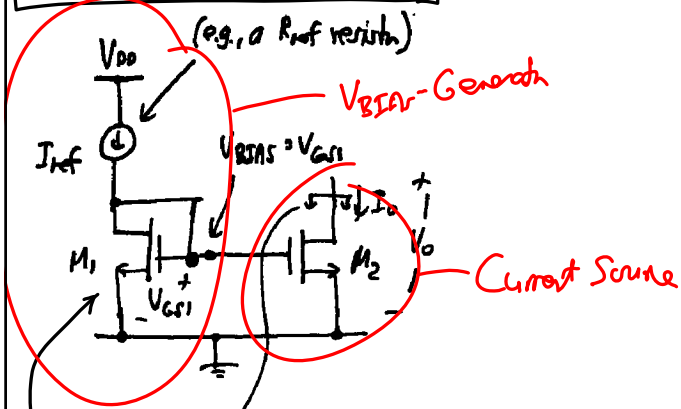 (e.g., a Rref resistor)
VDD
VBIAS-Generator
Iref
VBIAS = VGS1
+
Io
Vo
M1
+
VGS1
-
M2
-
Current Source